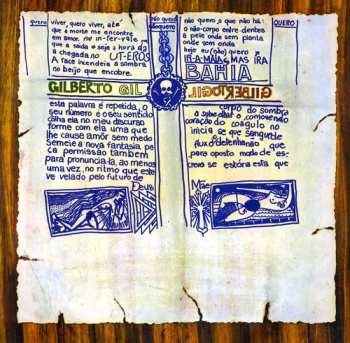 quero
viver, quero viver, até
que a morte me encontre
em amor, no in-fer-vale
que a saída e seja a hora da
a chegada no UT-EROS
A face incendeia a sombra
no beijo que encobre.
não quero
não quero
não quero, o que não há:
o não-corpo entre-dentes
a pele onde sem planta
onde sem onda
hoje eu (não) quero
IR A MAIAC, MAS IRA
BAHIA
QUERO
GILBERTO GIL
GILBERTO GIL
esta palavra é repetida, o
seu número e o seu sentido
calha ela no meu discurso
forme com ela uma que
lhe cause amor sem medo
Semeie a nova fantasia, pe
ça permissão também
para pronunciá-la, ao menos
uma vez, no ritmo que este
ve velado pelo futuro de
Deus
corpo da sombra
coração do coágulo no
inicia se que sangue de
que
para oposto modo de es-
creva se estória esta que
Mãe